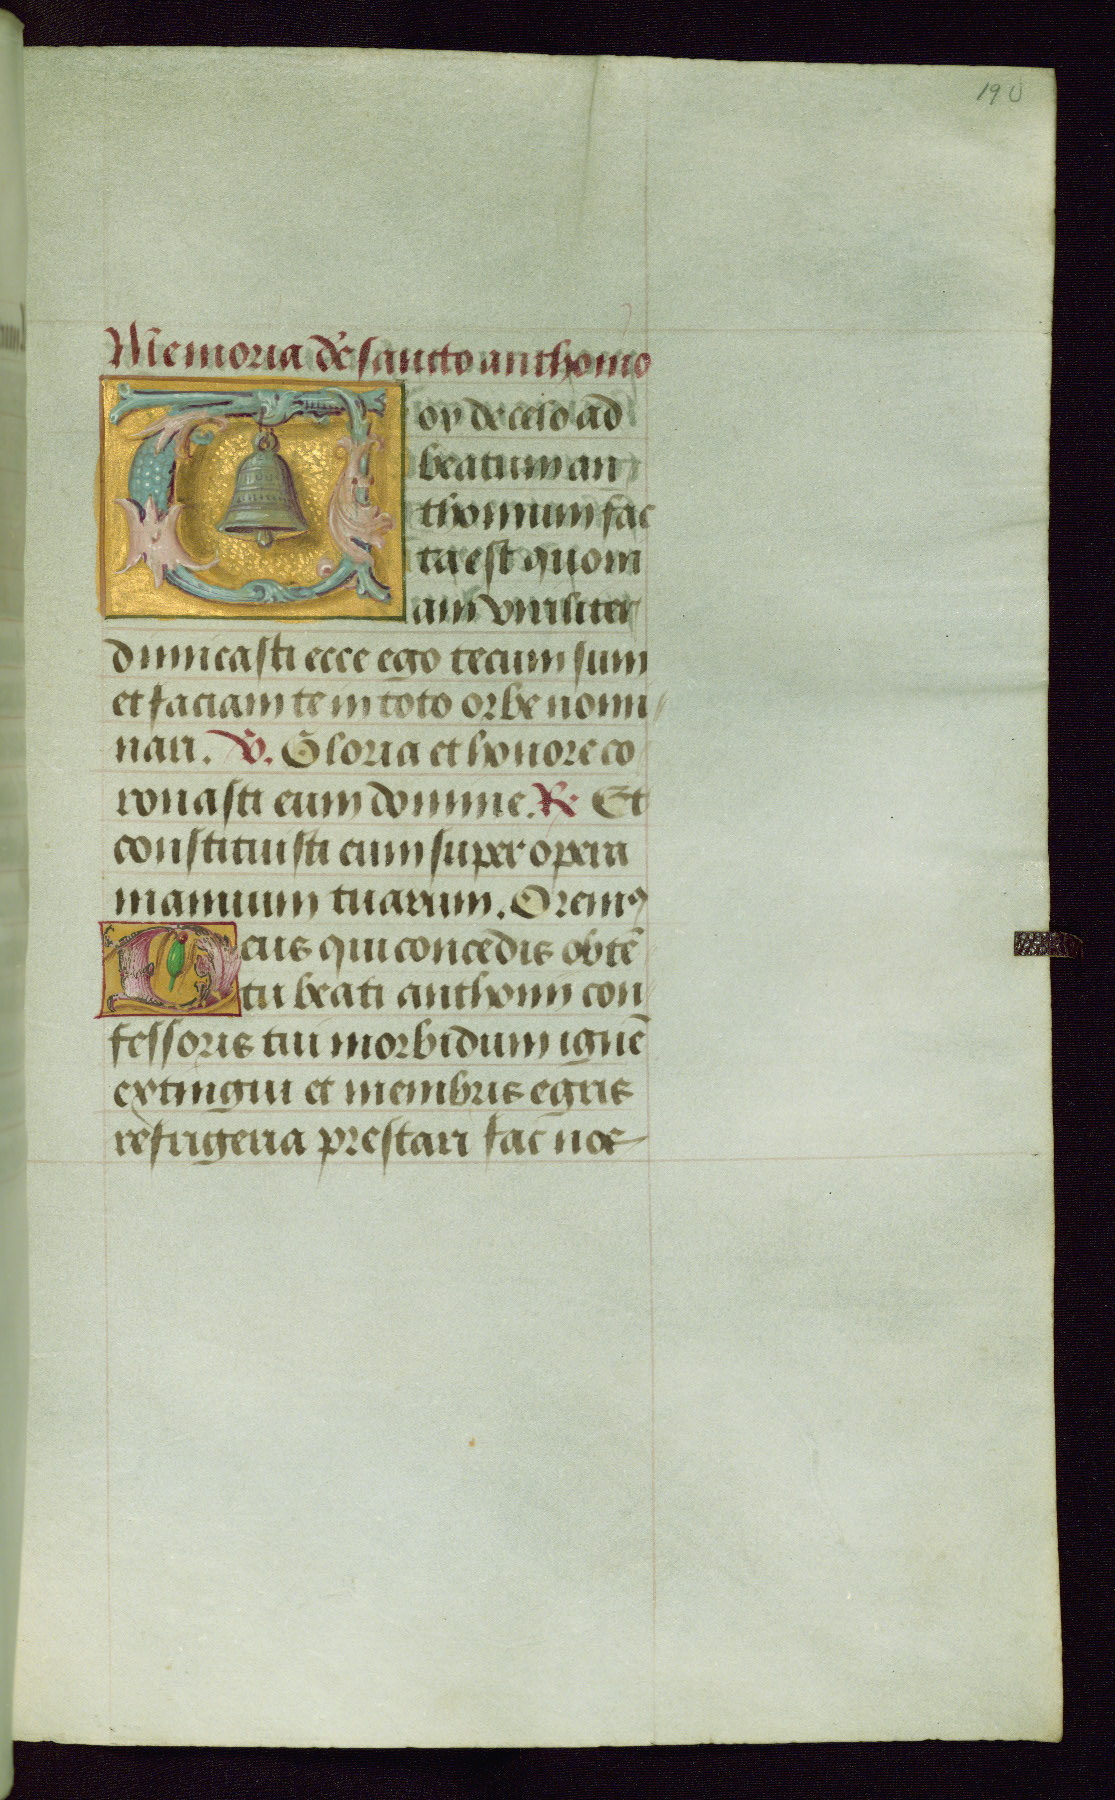 190
Memoria de sancto anthonio
Vox de celo ad
beatum an
thonium fac
ta est quoni
am viriliter
dimicasti ecce ego tecum sum
et faciam te in toto orbe nomi
nari. V. Gloria et honore co
ronasti eum domine. R. Et
constituisti eum super opera
manuum tuarum. Oremꝰ
Deus qui concedis obtē
tu beati anthonii con
fessoris tui morbidum ignē
extingui et membris egris
refrigeria prestari fac nos